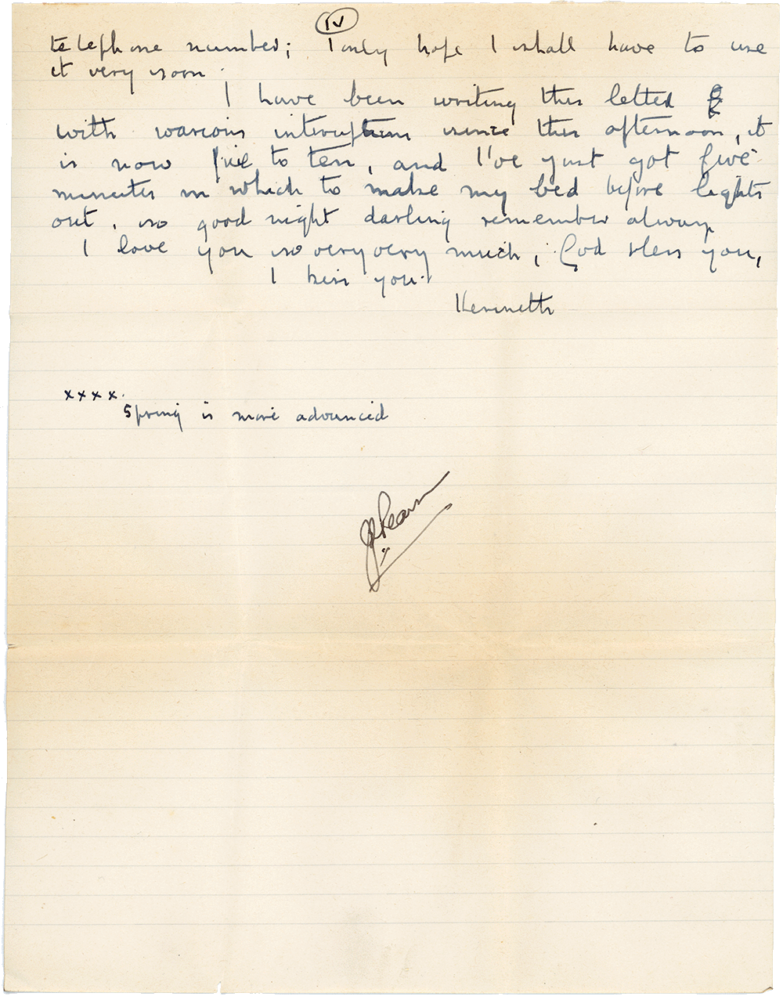 IV
telephone number; I only hope I shall have to use
it very soon.
I have been writing this letter
with various interruptions since this afternoon, it
is now five to ten, and I've just got five
minutes in which to make my bed before lights
out, so good night darling remember always
I love you so very very much, God bless you,
I kiss you.
Kenneth
xxxx.
Spring is more advanced